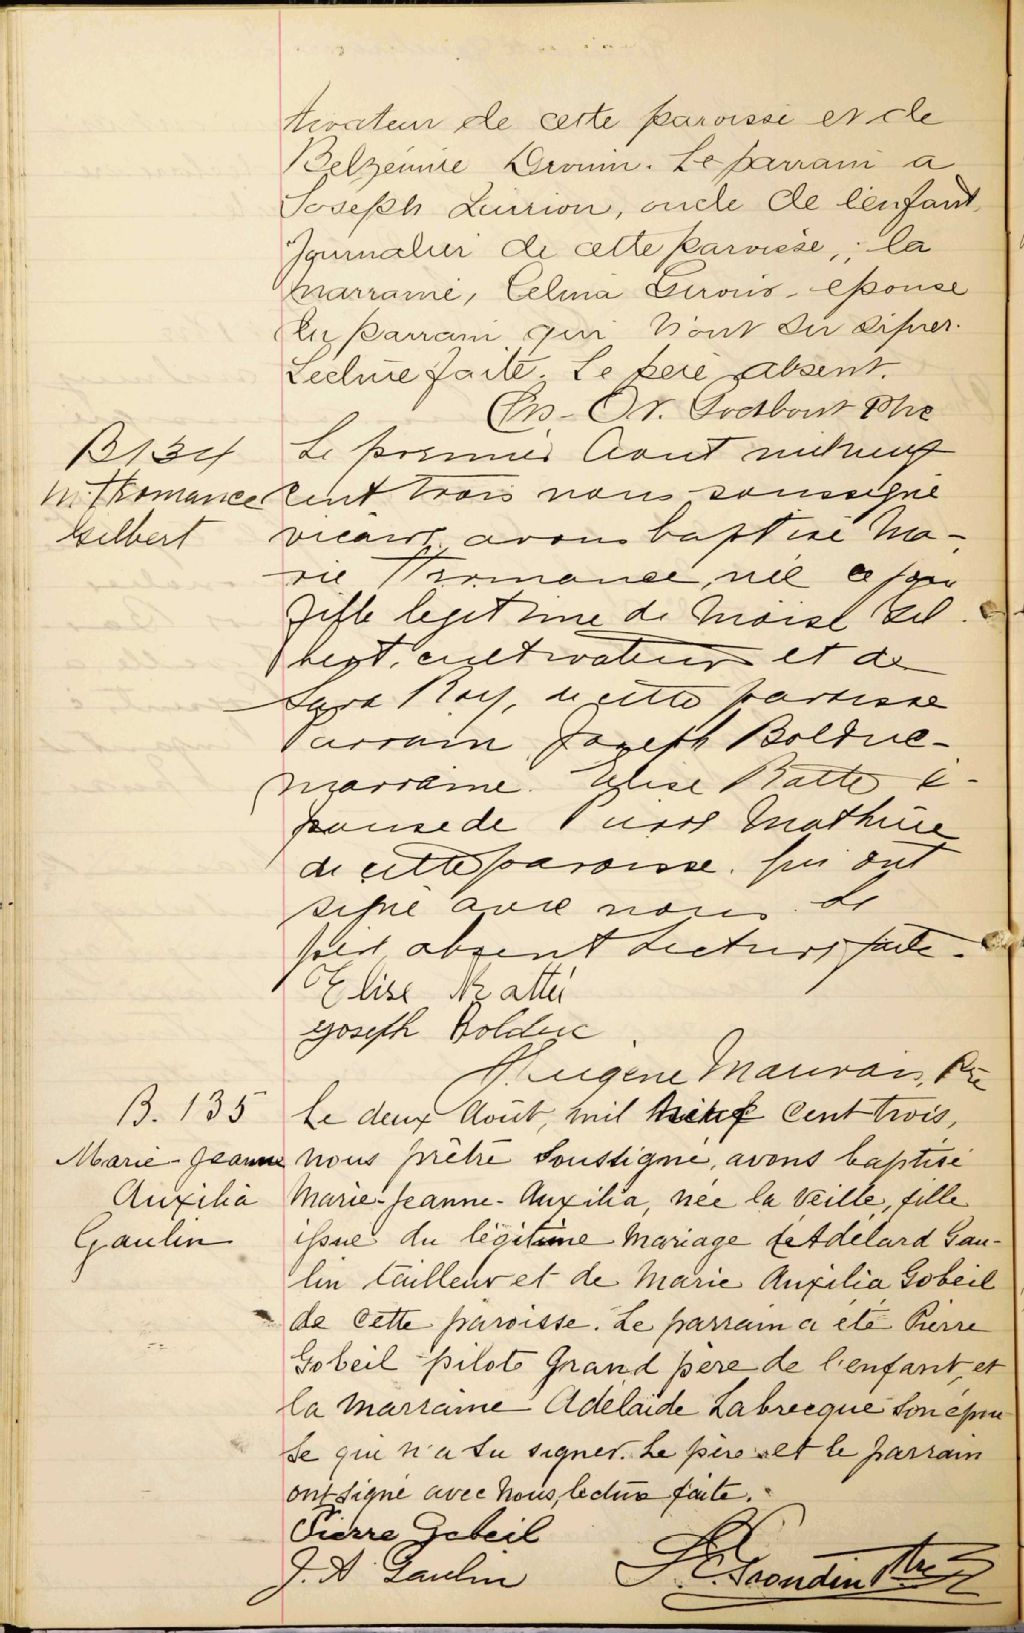 tivateur de cette paroisse et de
Belzémire Drouin. Le parrain a
Joseph Turrion, oncle de l'enfant,
journalier de cette paroisse, ; la
marraine, Celina Giroux - epouse
du parrain qui n'ont su signer.
Lecture faite. Le père absent.
Ch. - Od. Godbout Ptre
B 134
M. Hromance
Gilbert
Le premier Aout mil neuf
cent trois nous soussigné
vicaire avons baptisé Ma-
rie Hromance, née ce jour
fille legitime de Moïse Gil
bert, cultivateur et de
Sara Roy, de cette paroisse
Parrain Joseph Bolduc -
marraine Elise Ratté é-
pouse de Pierre Mathieu
de cette paroisse. qui ont
signé avec nous. Le
père absent Lecture faite.
Elise Ratté
Joseph Bolduc
Eugène Mauvais, Ptre
B. 135
Marie - Jeanne
Auxilia
Gaulin
Le deux Août, mil neuf cent trois,
nous prêtre soussigné, avons baptisé
Marie-Jeanne-Auxilia, née la veille, fille
issue du légitime mariage de Adélard Gau-
lin tailleur et de Marie Auxilia Gobeil
de cette paroisse. Le parrain a été Pierre
Gobeil pilote grand père de l'enfant, et
la marraine Adélaïde Labrecque son épou
se qui n'a su signer. Le père et le parrain
ont signé avec nous, lecture faite.
Pierre Gobeil
J. A Gaulin
Grondin Ptre